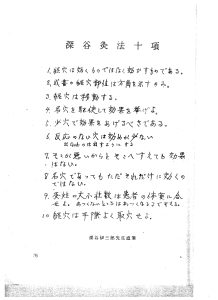 深谷灸法十項
1.経穴は効くものではなく効かすものである。
2.成書の経穴部位は方角を示すのみ。
3.経穴は移動する。
4.名穴を駆使して効果を挙げよ。
5.少穴で効果をあげるべきである。
6.反応のない穴は効めが少ない
7.そこが悪いからとそこへすえても効果はない。
8.名穴であってもただそれだけに効くのではない。
9.艾炷の大小壮数は患者の体質に合せよ。あつくないときはあつくなるまですえよ。
10.経穴は手際よく取穴せよ。
深谷伊三郎先生遺筆
76